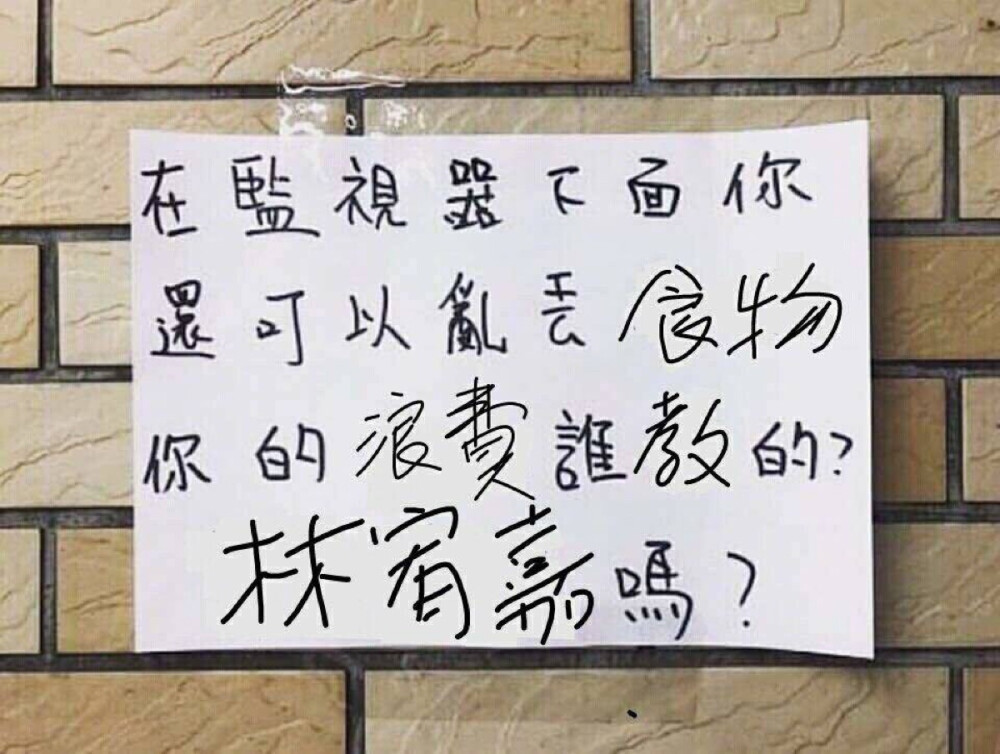 在監視器下面你
還可以亂丟食物
你的浪費誰教的?
林宥嘉嗎?